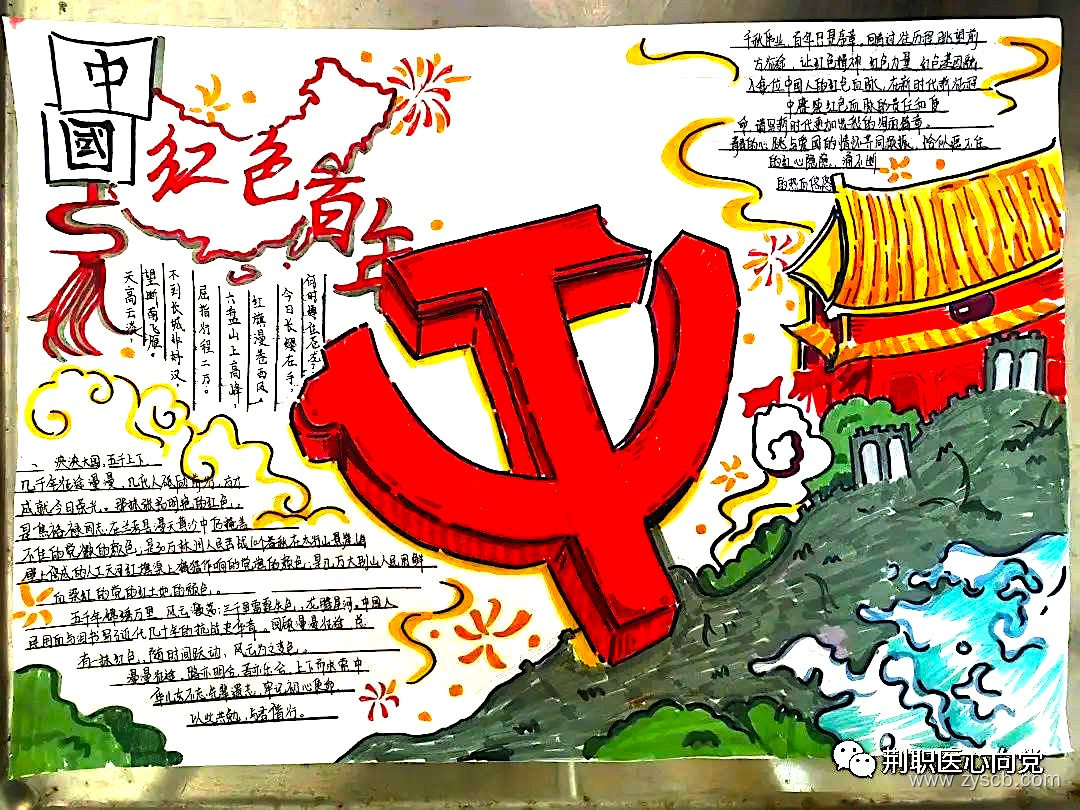 中
國
红色百年
天高云淡，
望断南飞雁。
不到长城非好汉，
屈指行程二万。
六盘山上高峰，
红旗漫卷西风。
今日长缨在手，
何时缚住苍龙
千秋伟业，百年只是序章。回首过往历程眺望前
方征途，让红色精神 红色力量 红色基因融
入每位中国人的红色血脉，在新时代新征程
中赓续红色血脉的责任和使
命，谱写新时代更加出彩的绚丽篇章。
的心跳与爱国的情怀共同，恰似
的初心熠熠，涌不断
的热血悠悠
一、泱泱大国，五千上下
几千年征途漫漫，几代人砥砺前行，方
成就今日荣光。那抹张扬明艳的红色，
是焦裕禄同志，在兰考县漫天黄沙中
不住的党徽的颜色，是30万林州人民苦战10个春秋在太行山悬崖峭
壁上修成的人工天河红旗渠上猎猎作响的党旗的颜色，是几万大别山人民用鲜
血染红的党的红土地的颜色。
五千年锦绣万里，风云激荡；三千里雷霆失色，龙腾星河。中国人
民用血与泪书写了近代几十年的抗战史作章，回顾漫漫征途，总
有一抹红色，随时间跃动，风云为之变色。
漫漫征途，路亦明兮，吾亦乐兮，上下而求索中
华儿女不忘，牢记初心使命
以此共勉，与君偕行。
荆职医心向党
www.zyscb.com